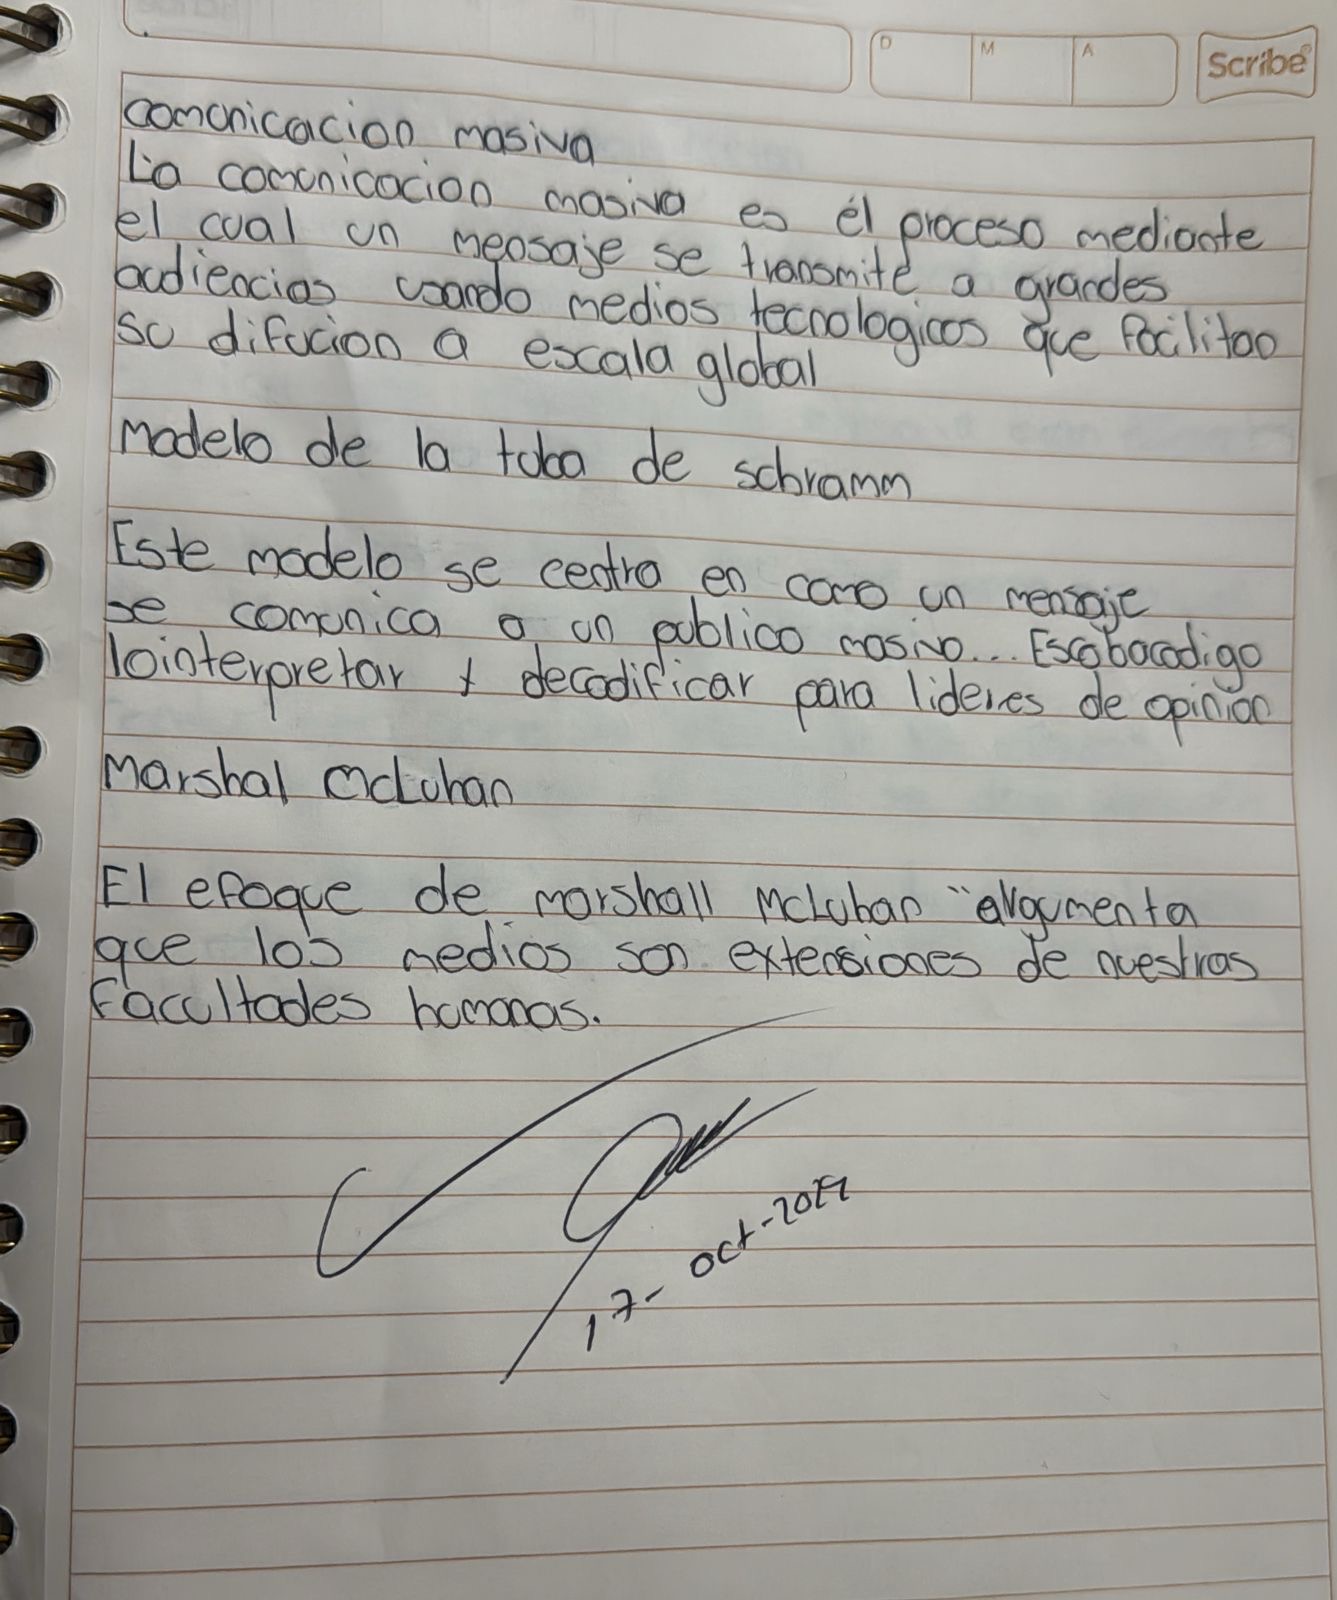 D M A Scribe
comunicacion masiva
La comunicacion masiva es el proceso mediante
el cual un mensaje se transmite a grandes
audiencias usando medios tecnologicos que facilitan
su difucion a escala global
Modelo de la tuba de schramm
Este modelo se centra en como un mensaje
se comunica a un publico masivo... Es
lointerpretar y decodificar para lideres de opinion
Marshal McLuhan
El efoque de marshall McLuhan "argumenta
que los medios son extensiones de nuestras
facultades humanas.
17- oct-